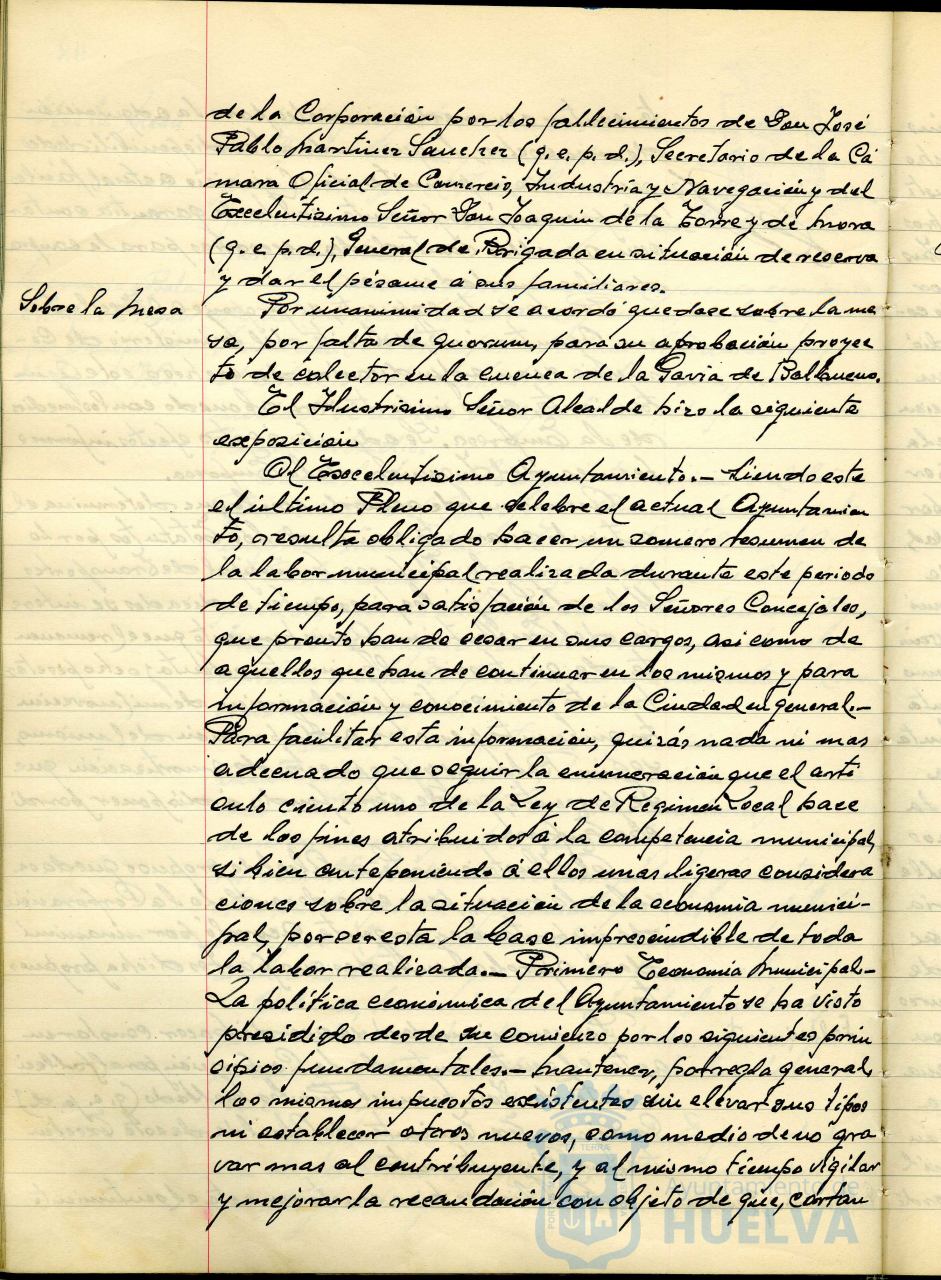 de la Corporación por los fallecimientos de Don José
Pablo Martinez Sanchez (q. e. p. d.), Secretario de la Cá
mara Oficial de Comercio, Industria y Navegación y del
Excelentisimo Señor Don Joaquin de la Torre y de Mora
(q. e. p. d.), General de Brigada en situación de reserva
y dar el pésame á sus familiares.
Sobre la Mesa
Por unanimidad se acordó quedase sobre la me
sa, por falta de quorum, para su aprobación proyec
to de colector en la cuenca de la Gavia de Ballenero.
El Ilustrisimo Señor Alcalde hizo la siguiente
exposición
Al Excelentisimo Ayuntamiento.- Siendo este
el último Pleno que celebre el actual Ayuntamien
to, resulta obligado hacer un somero resumen de
la labor municipal realizada durante este periodo
de tiempo, para satisfación de los Señores Concejales,
que pronto han de cesar en sus cargos, asi como de
aquellos que han de continuar en los mismos y para
información y conocimiento de la Ciudad en general.-
Para facilitar esta información, quizás nada ni mas
adecuado que seguir la enumeración que el arti
culo ciento uno de la Ley de Regimen Local hace
de los fines atribuidos á la competencia municipal,
si bien anteponiendo á ellos unas ligeras considera
ciones sobre la situación de la economia munici-
pal, por ser esta la base imprescindible de toda
la labor realizada.- Primero Economia Municipal.-
La política económica del Ayuntamiento se ha visto
presidido desde su comienzo por los siguientes prin
cipios fundamentales.- Mantener, por regla general,
los mismos impuestos existentes sin elevar sus tipos
ni establecer otros nuevos, como medio de no gra
var mas al contribuyente, y al mismo tiempo vigilar
y mejorar la recaudación con objeto de que, cortan
Ayuntamiento de
HUELVA